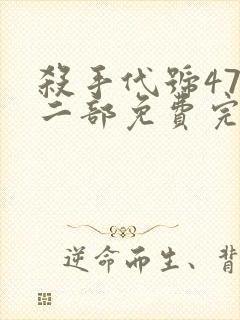 殺手代號47
二部免費完
逆命而生、背